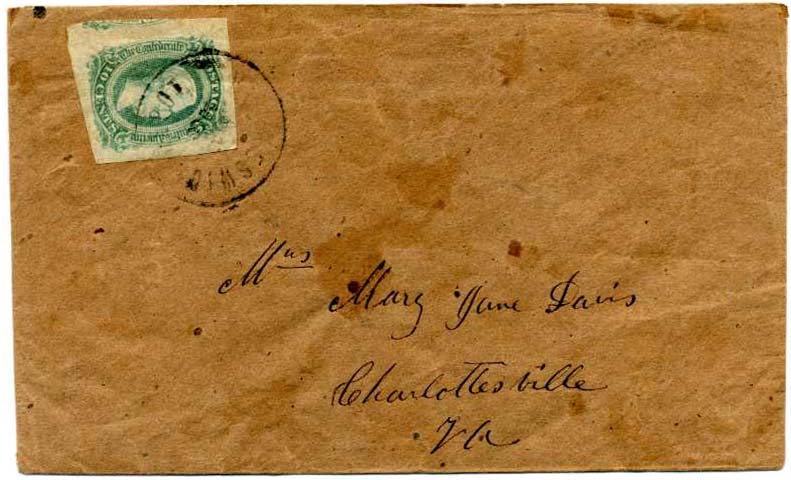 The Confederate
POSTAGE
TEN CENTS
Mrs
Mary Jane Davis
Charlottesville
Va